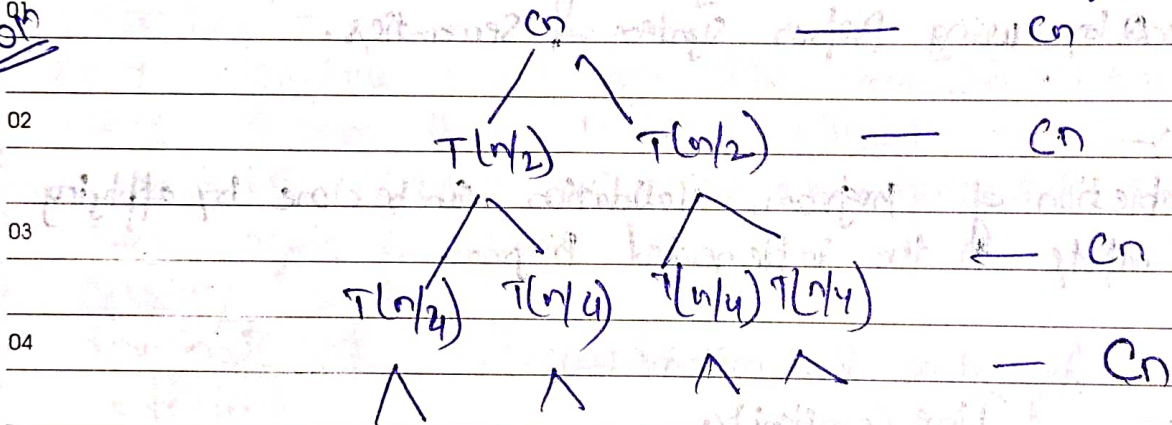 Cn — Cn
02
T(n/2) T(n/2) — Cn
03
— Cn
T(n/4) T(n/4) T(n/4) T(n/4)
04
— Cn